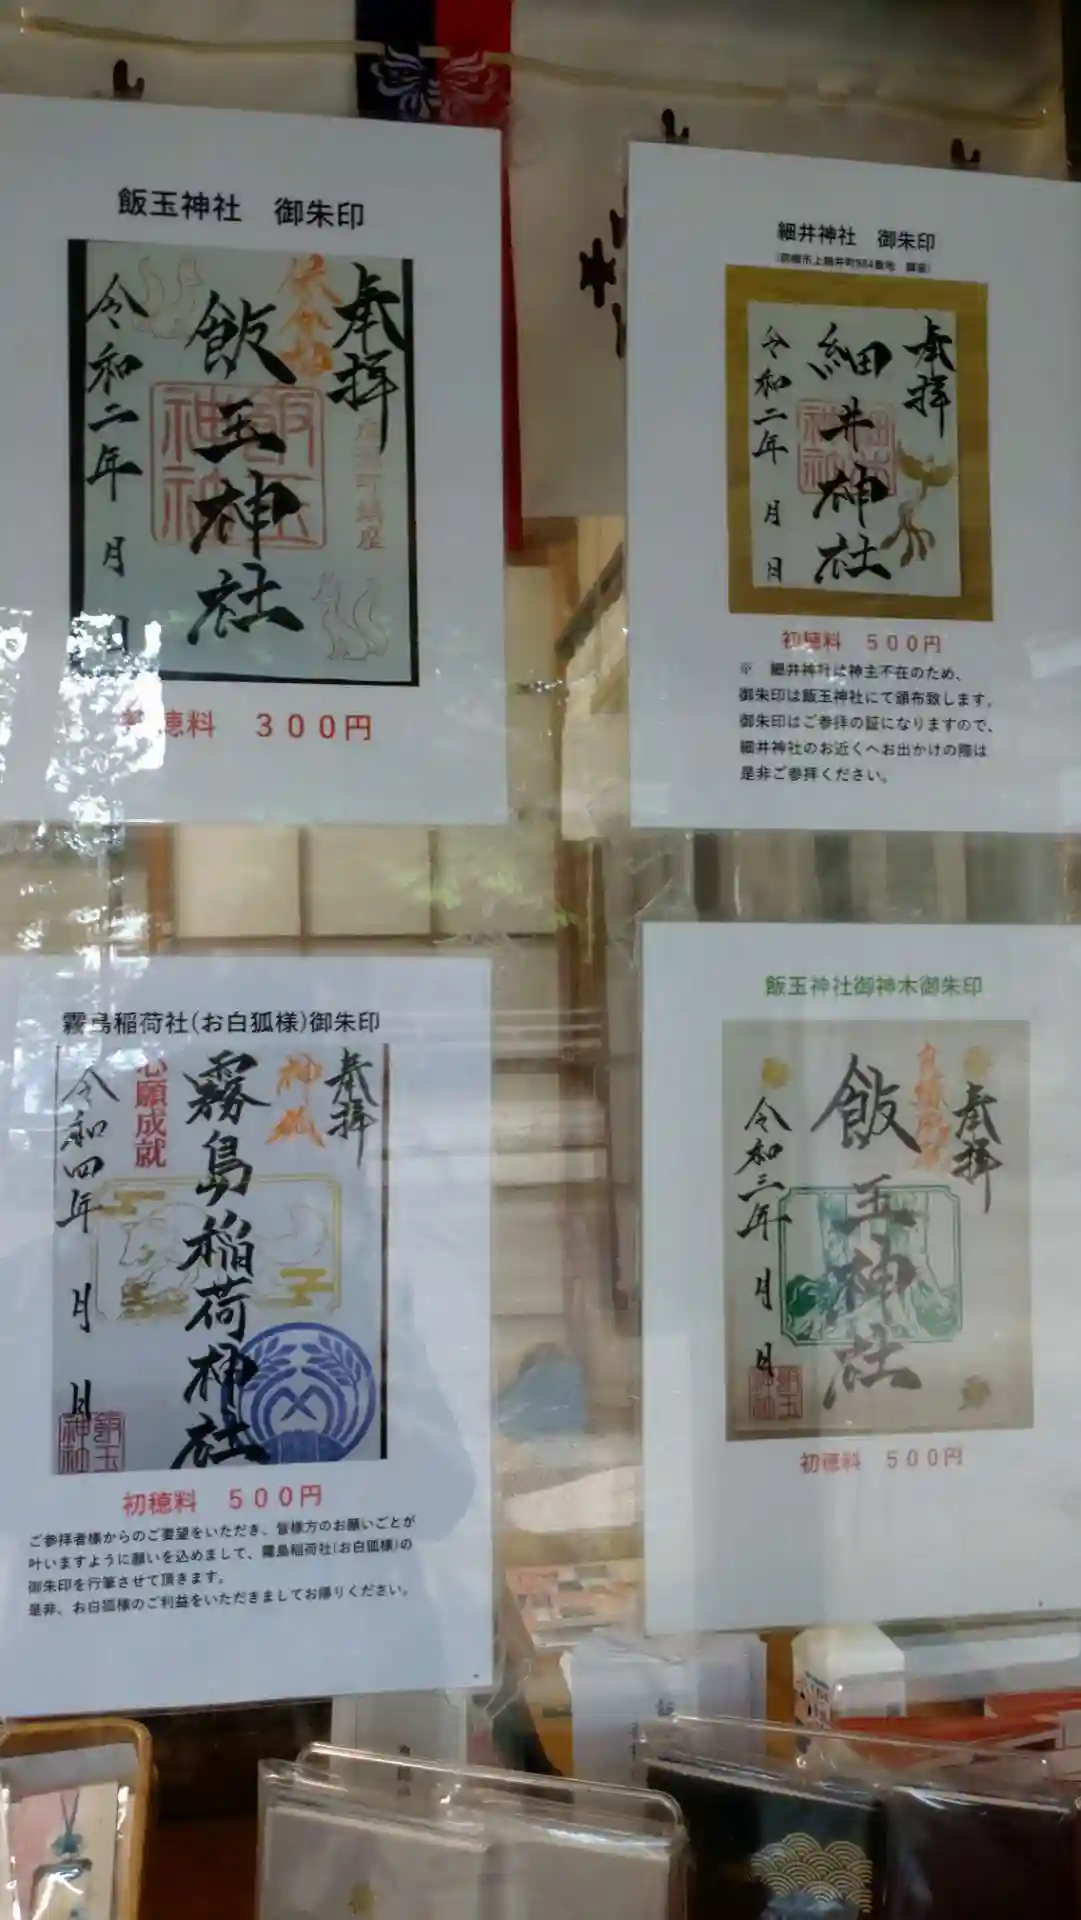 飯玉神社　御朱印
奉拝
飯玉神社
令和二年　月　日
飯玉神社
初穂料　３００円
細井神社　御朱印
奉拝
細井神社
令和二年　月　日
初穂料　５００円
※　細井神社は神主不在のため、
御朱印は飯玉神社にて頒布致します。
御朱印はご参拝の証になりますので、
細井神社のお近くへお出かけの際は
是非ご参拝ください。
霧島稲荷社(お白狐様)御朱印
奉拝
神狐
霧島稲荷神社
心願成就
令和四年　月　日
飯玉神社
初穂料　５００円
ご参拝者様からのご要望をいただき、皆様方のお願いごとが
叶いますように願いを込めまして、霧島稲荷社(お白狐様)の
御朱印を行筆させて頂きます。
是非、お白狐様のご利益をいただきましてお帰りください。
飯玉神社御神木御朱印
奉拝
飯玉神社
令和三年　月　日
飯玉神社
初穂料　５００円